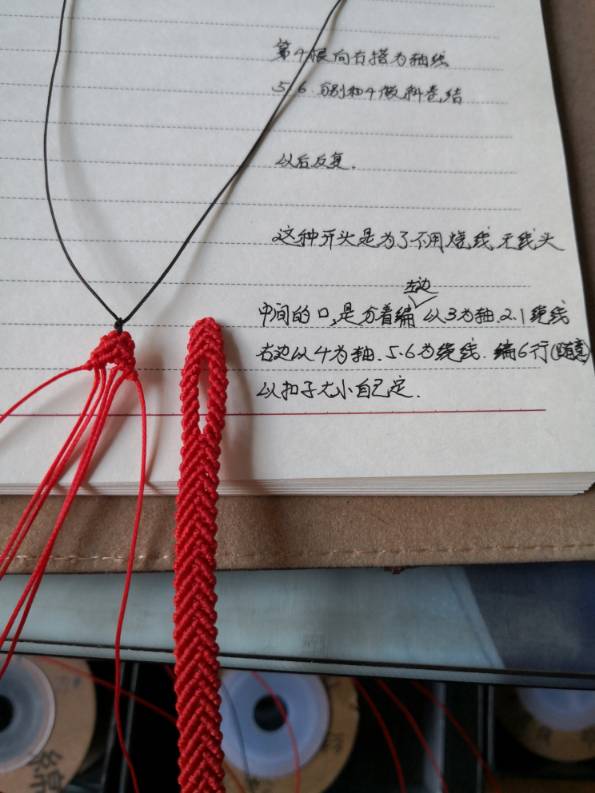 第4根向右搭为轴线
5.6.分别和4做斜卷结
以后反复.
这种开头是为了不用烧线,无线头
左边
中间的口,是分着编 以3为轴.2.1绕线
右边以4为轴.5.6为绕线.编6行(随意)
以扣子大小自己定.